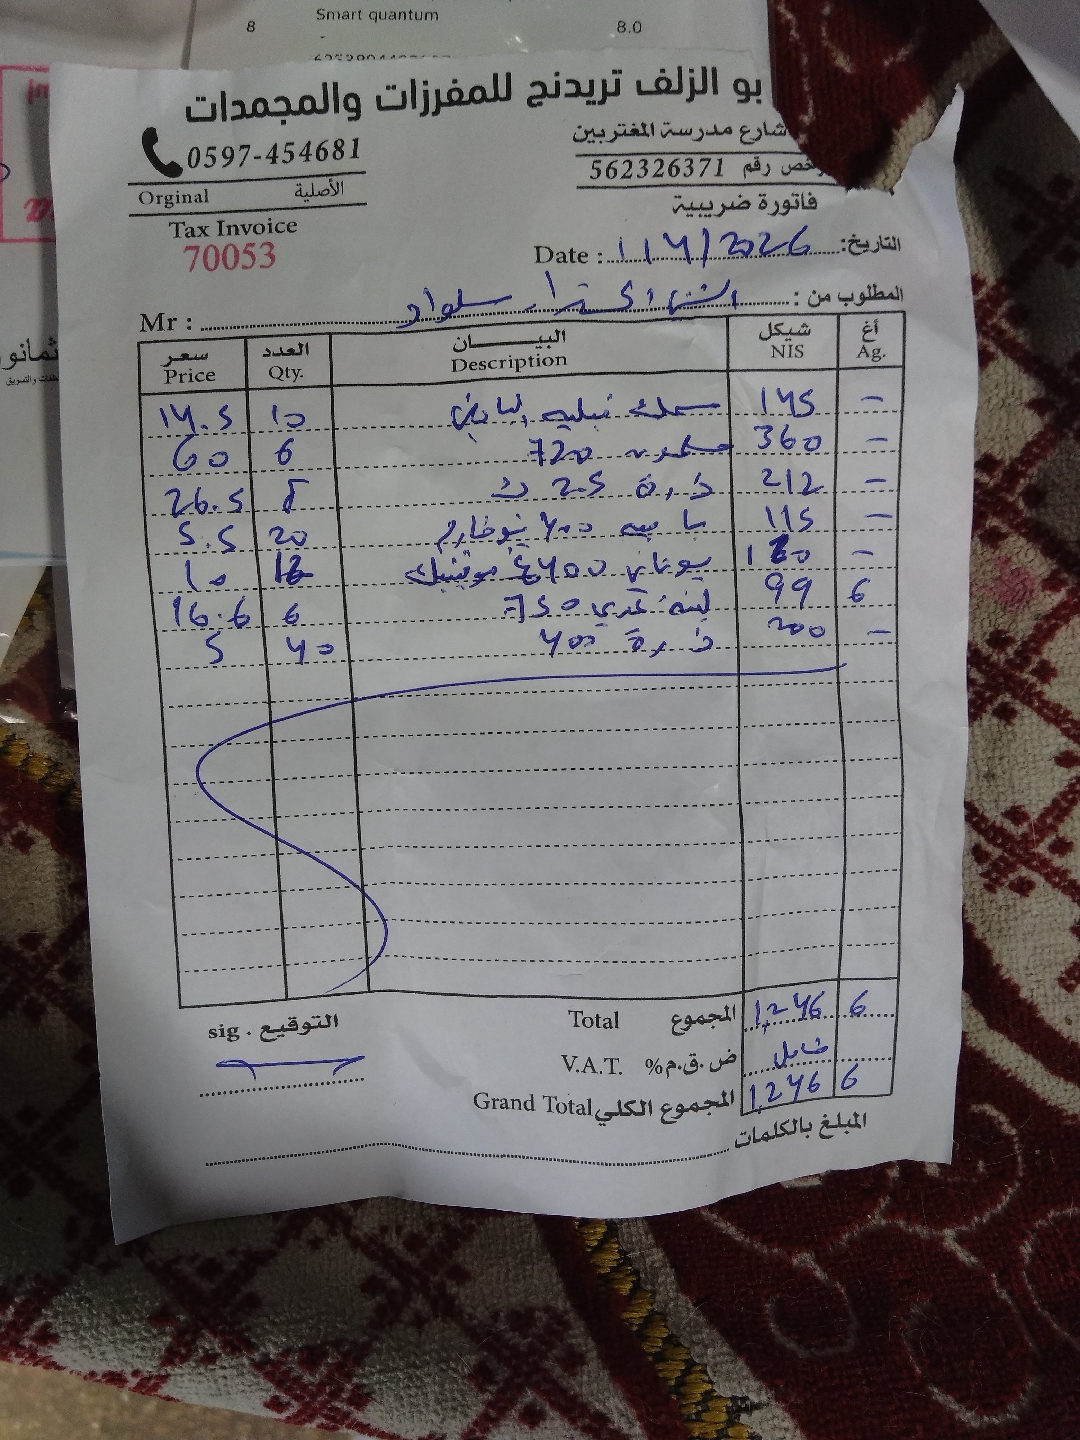 Smart quantum
8 8.0
بو الزلف تريدنج للمفرزات والمجمدات
0597-454681 شارع مدرسة المغتربين
رقم 562326371
Orginal الأصلية
فاتورة ضريبية
Tax Invoice
70053
Date : 1/4/2026 التاريخ:
Mr : سلواد المطلوب من :
سعر العدد البيــــــــان شيكل أغ
Price Qty. Description NIS Ag.
14.5 10 سمك فيليه 145 -
60 6 720 360 -
26.5 8 ذرة 2.5 ك 212 -
5.5 20 400 115 -
10 400 -
16.6 6 750 99 6
5 40 ذرة 400 200 -
Total المجموع 1,246 6
sig . التوقيع
V.A.T. ض.ق.م% شامل
Grand Total المجموع الكلي 1,246 6
المبلغ بالكلمات